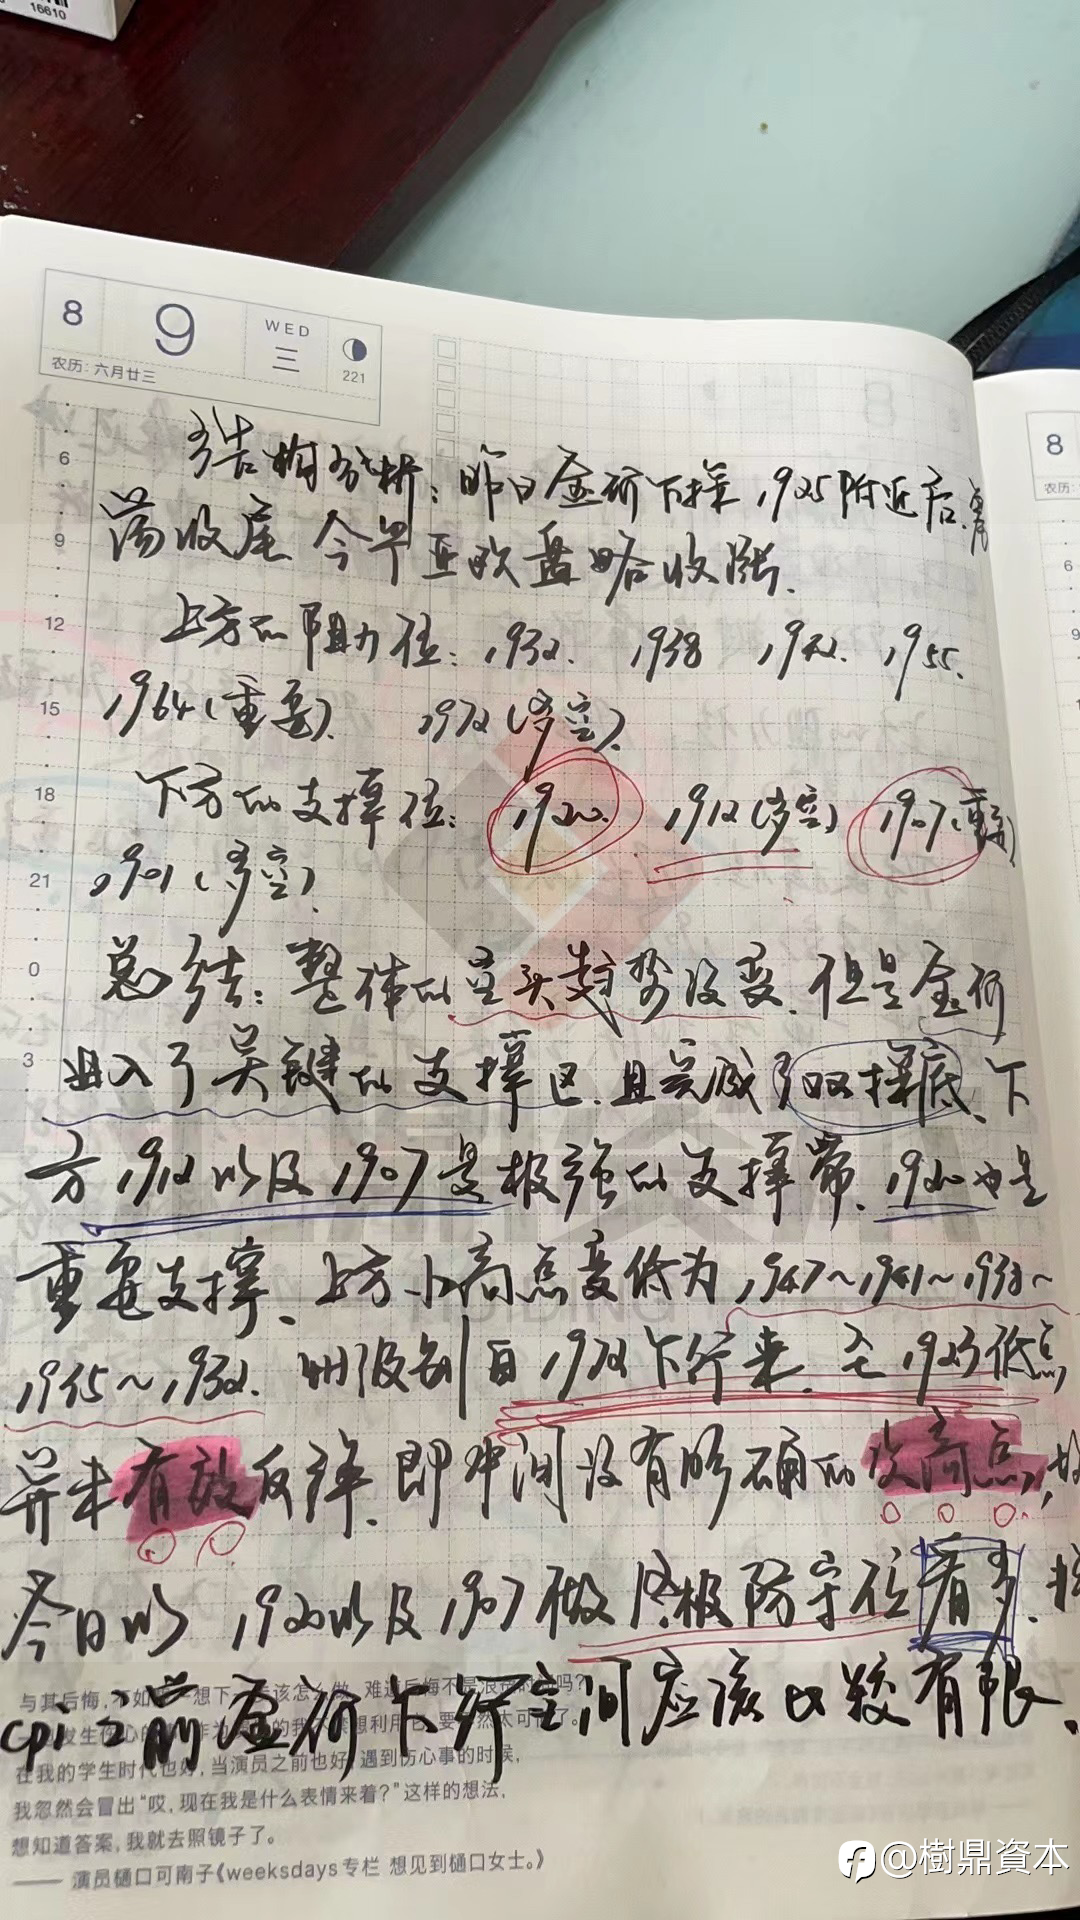 16610
8
9
WED
三
221
农历：六月廿三
8
农历：
6
9
12
15
18
21
0
3
6
9
结构分析：昨日金价下探1925附近后
荡收尾 今早亚欧盘略收涨.
上方的阻力位：1932. 1938 1942. 1955.
1964(重要). 1972(多空).
下方的支撑位： 1920. 1912(多空) 1907(重要)
1901(多空).
总结：整体的空头趋势没变. 但是金价
进入了关键的支撑区. 且完成了双探底、下
方1912以及1907是极强的支撑带. 1920也是
重要支撑、上方小高点变低为1947～1941～1938～
1935～1932. 级别自1972下行来. 至1923低点
并未有效反弹. 即中间没有明确的次高点,
今日以1920以及1907做终极防守位看多.
cpi之前金价下行空间应该比较有限.
与其后悔,
在我的学生时代也好, 当演员之前也好, 遇到伤心事的时候,
我忽然会冒出“哎, 现在我是什么表情来着?”这样的想法,
想知道答案, 我就去照镜子了。
—— 演员樋口可南子《weeksdays专栏 想见到樋口女士。》
HUIDING
@樹鼎資本